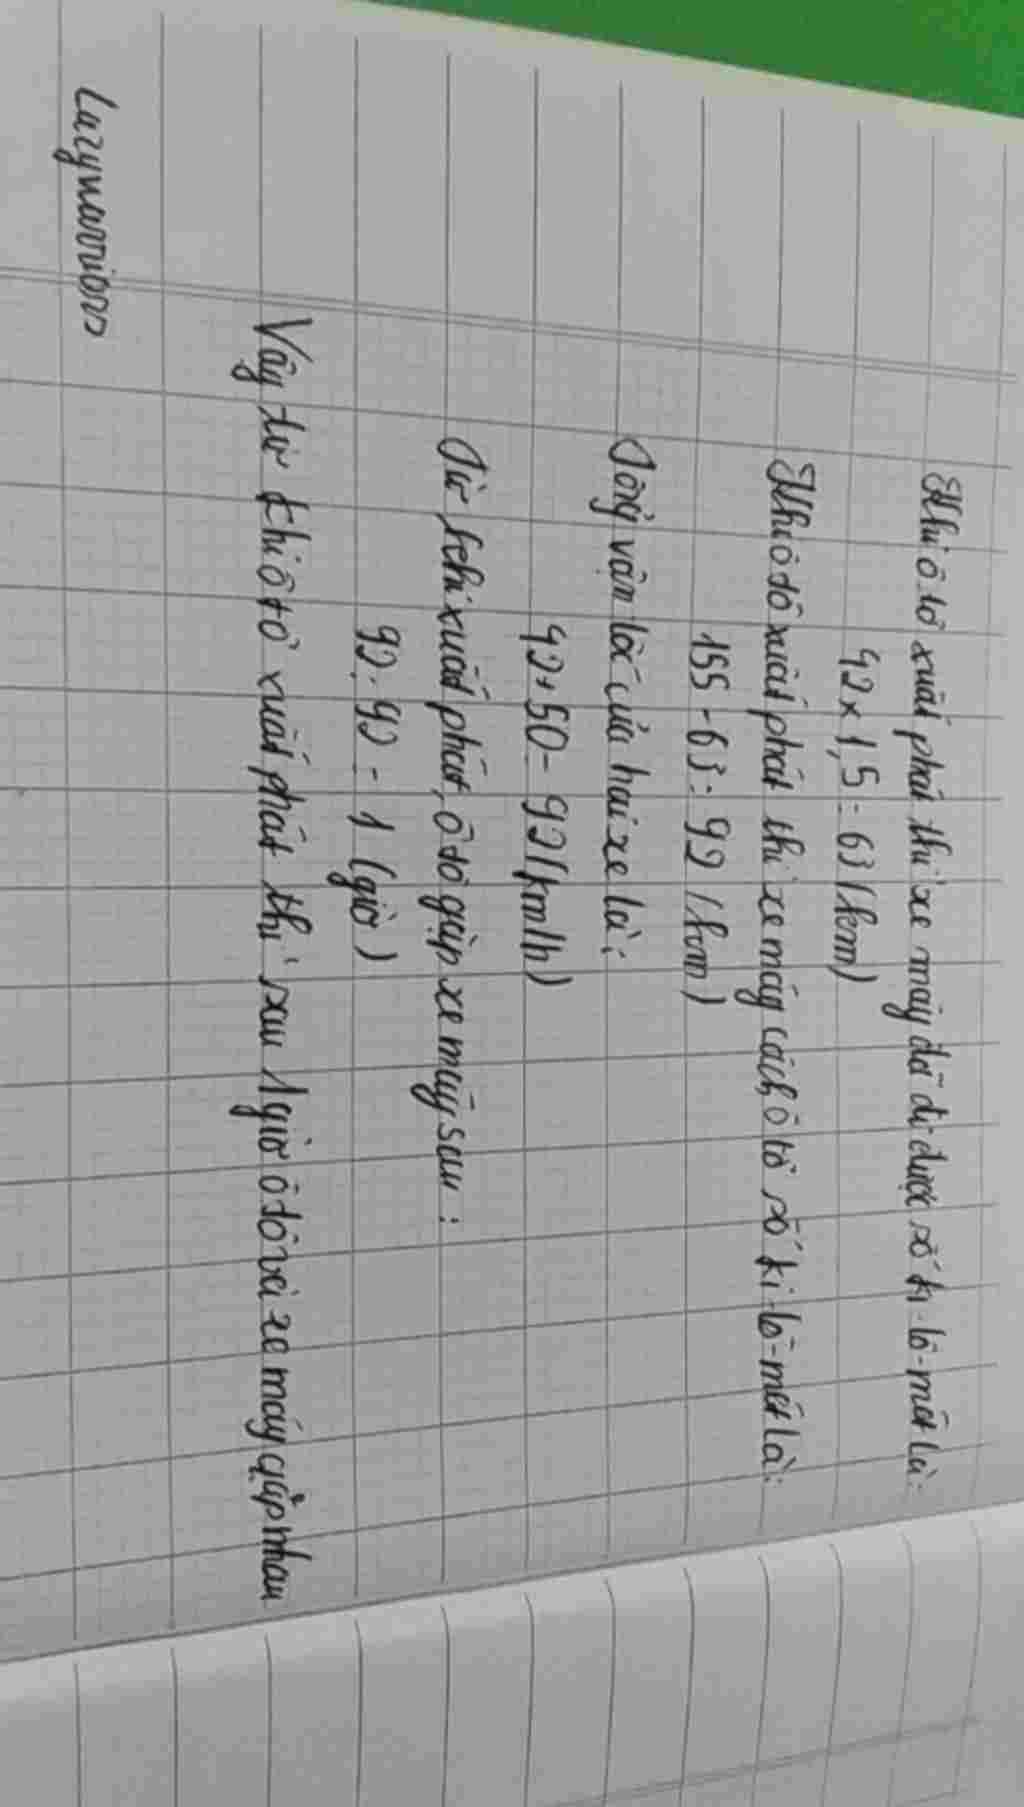 Khi ô tô xuất phát thì xe máy đã đi được số ki-lô-mét là:
42 x 1,5 = 63 (km)
Khi ô tô xuất phát thì xe máy cách ô tô số ki-lô-mét là:
155 - 63 = 92 (km)
Tổng vận tốc của hai xe là:
42 + 50 = 92 (km/h)
Từ khi xuất phát, ô tô gặp xe máy sau:
92 : 92 = 1 (giờ)
Vậy từ khi ô tô xuất phát thì sau 1 giờ ô tô và xe máy gặp nhau
Lazywarrior